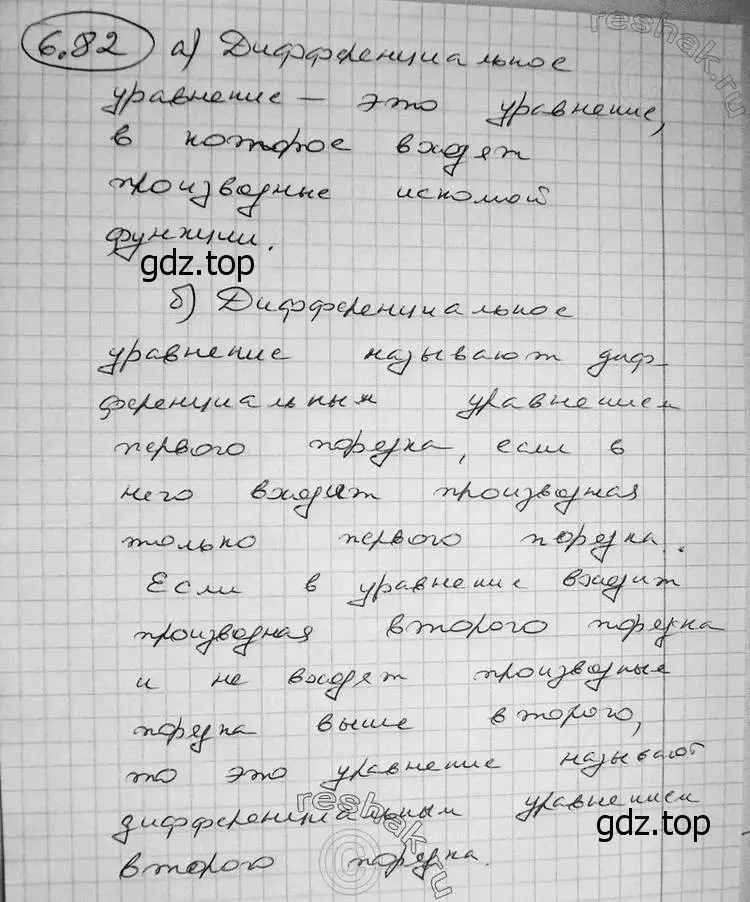 6.82 а) Дифференциальное
уравнение — это уравнение,
в которое входят
производные искомой
функции.
gdz.top
б) Дифференциальное
уравнение называют диф-
ференциальным уравнением
первого порядка, если в
него входит производная
только первого порядка.
Если в уравнение входит
производная второго порядка
и не входят производные
порядка выше второго,
то это уравнение называют
дифференциальным уравнением
gdz.top
второго порядка.
reshak.ru
reshak.ru